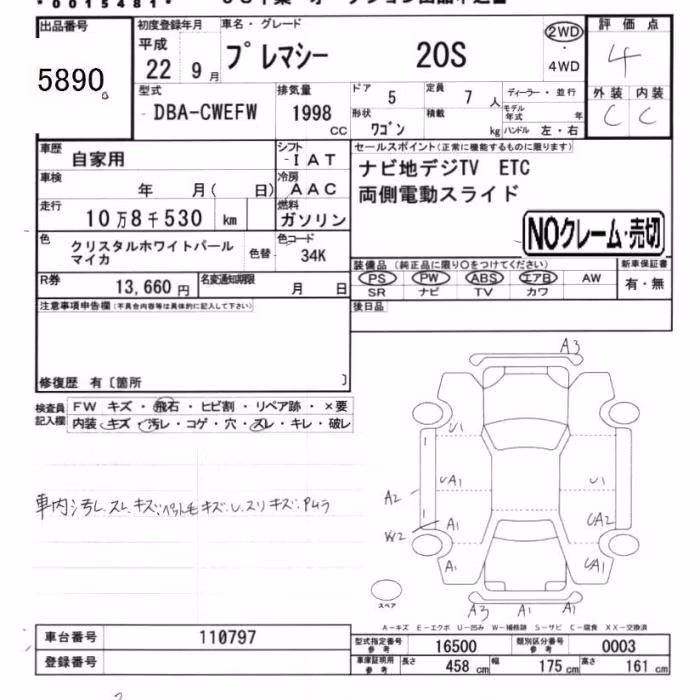 ・0015481・
出品番号
5890
初度登録年月
平成
22 9月
車名・グレード
プレマシー 20S
2WD
・
4WD
評価点
4
外装 内装
C C
型式
DBA-CWEFW
排気量
1998
CC
ドア 5
定員 7人
ディーラー・並行
形状
ワゴン
積載
kg
モデル年式 年
ハンドル 左・右
車歴
自家用
車検
年 月( 日)
走行
10万8千530 km
シフト
-IAT
冷房
AAC
燃料
ガソリン
色
クリスタルホワイトパール
マイカ
色替
色コード
34K
セールスポイント(正常に機能するものに限ります)
ナビ地デジTV ETC
両側電動スライド
NOクレーム・売切
装備品(純正品に限り○をつけてください)
PS PW ABS エアB AW
SR ナビ TV カワ
新車保証書
有・無
R券
13,660円
名変通知期限
月 日
後日品
注意事項申告欄(不具合内容等は具体的に記入して下さい)
修復歴 有〔箇所 〕
検査員
記入欄
FW キズ・飛石・ヒビ割・リペア跡・×要
内装 キズ・汚レ・コゲ・穴・スレ・キレ・破レ
A3
U1
UA1
U1
A2
W2
A1
UA2
A1
UA1
スペア
A3 A1 A1
A-キズ E-エクボ U-凹み W-補修跡 S-サビ C-腐食 XX-交換済
車台番号
110797
登録番号
型式指定番号
参考
16500
類別区分番号
参考
0003
車庫証明用
参考
長さ 458cm
幅 175cm
高さ 161cm